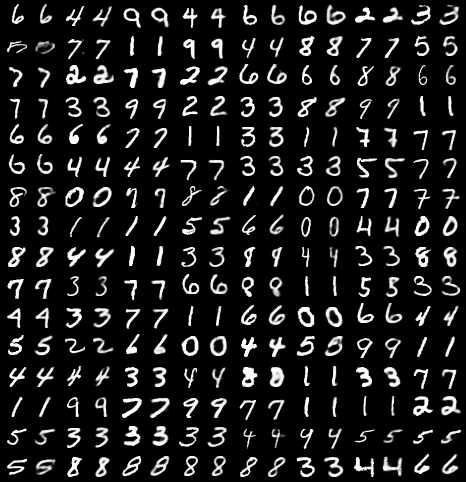 6 6 4 4 9 9 4 4 6 6 6 6 2 2 3 3
5 7 7 1 1 9 9 4 4 8 8 7 7 5 5
7 7 2 2 7 7 2 2 6 6 6 6 8 8 6 6
7 7 3 3 9 9 2 2 3 3 8 8 9 9 1 1
6 6 6 6 7 7 1 1 3 3 1 1 7 7 7 7
6 6 4 4 4 4 7 7 3 3 3 3 5 5 7 7
8 8 0 0 7 7 8 8 1 1 0 0 7 7 7 7
3 3 1 1 1 1 5 5 6 6 0 0 4 4 0 0
8 8 4 4 1 1 3 3 8 9 4 4 3 3 8 8
7 7 3 3 7 7 6 6 8 8 1 1 5 5 3 3
4 4 3 3 7 7 1 1 6 6 0 0 6 6 4 4
5 5 2 2 6 6 0 0 4 4 5 8 9 9 1 1
4 4 4 4 3 3 4 4 8 8 1 1 3 3 7 7
1 1 9 9 7 7 9 9 7 7 1 1 1 1 2 2
5 5 3 3 3 3 3 3 4 4 9 4 5 5 5 5
5 5 8 8 8 8 8 8 8 8 3 3 4 4 6 6